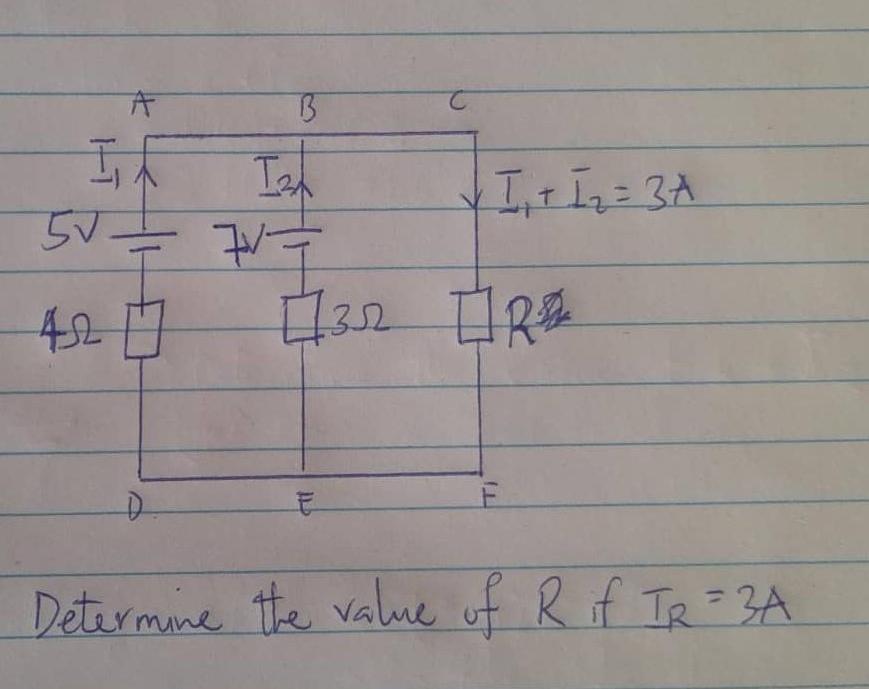 A B C
I₁ I₂ I₁ + I₂ = 3A
5V 7V
4Ω 3Ω R
D E F
Determine the value of R if I_R = 3A